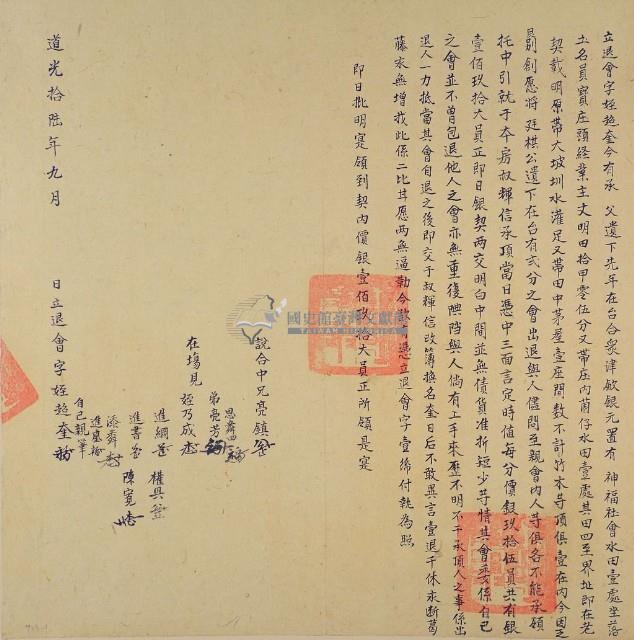 立退會字姪趂奎今有承　父遺下先年在台合衆津斂銀元置有　神福社會水田壹處坐落
土名員寶庄頭経業主丈明田拾甲零伍分又帶庄內菌仔水田壹處其田四至界址即在老
契載明原帶大坡圳水灌足又帶田中茅屋壹座間數不計竹木等項俱壹在內今因乏
別創愿將　廷棋公遺下在台有弍分之會出退與人儘問至親會內人等俱各不能承領
托中引就于本房叔輝信承頂當日憑中三面言定時值每分價銀玖拾伍員共有銀
壹佰玖拾大員正即日銀契兩交明白中間並無債貨准折短少等情其會委係自己
之會並不曾包退他人之會亦無重復典掛與人倘有上手來歷不明不干承頂人之事係出
退人一力抵當其會自退之後即交于叔輝信改簿換名奎日後不敢異言壹退千休永断葛
藤永無增找此係二比甘愿兩無逼勒今欲有憑立退會字壹紙付執為照
即日批明寔領到契內價銀壹佰玖拾大員正所領是寔
說合中兄亮鎮
思舞四
弟亮芳
在塲見
姪乃成
進綱
權興
進書
添舜
陳寬
進
自己親筆
道光拾陸年九月　　日立退會字姪趂奎
國史館臺灣文獻館
TAIWAN HISTORICA